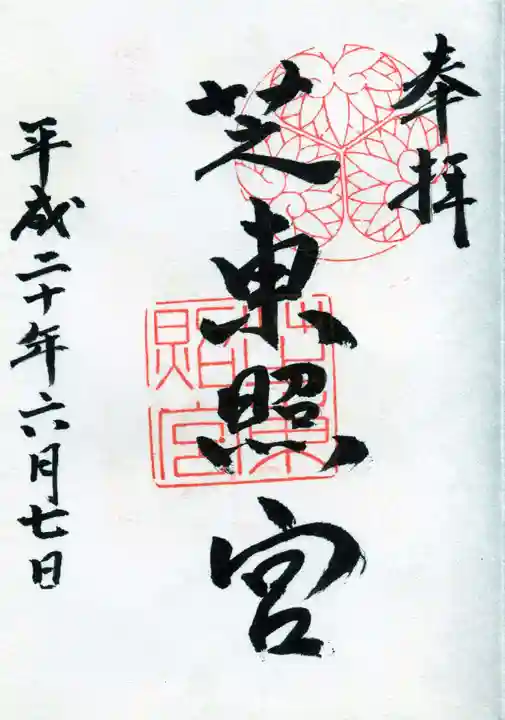 奉拝
芝東照宮
芝東照宮
平成二十年六月七日